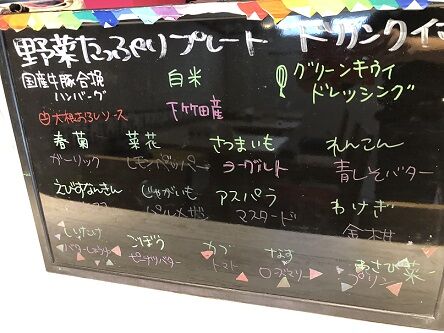 野菜たっぷりプレート ドリンク付
国産牛豚合挽 白米 グリーンキウイ
ハンバーグ 下竹田産 ドレッシング
大根おろしソース
春菊 菜花 さつまいも れんこん
ガーリック レモンペッパー ヨーグルト 青しそバター
えびすなんきん じゃがいも アスパラ わけぎ
パルメザン マスタード 金柑
しいたけ ごぼう かぶ なす わさび菜
バターしょうゆ ピーナツバター トマト ローズマリー プリン